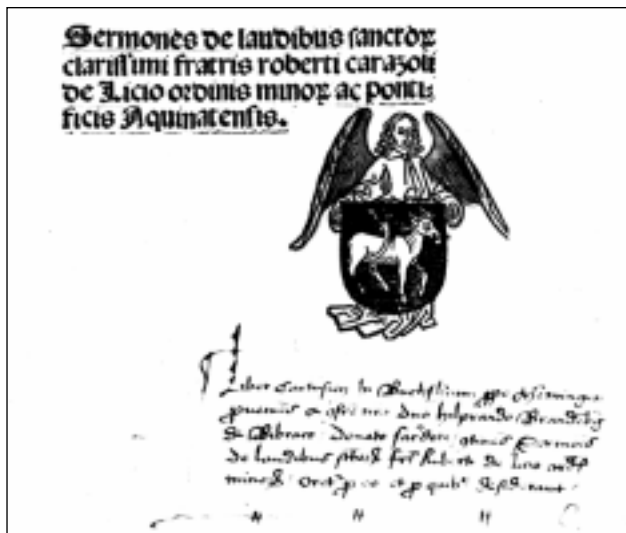 Sermones de laudibus sanctoꝝ
clarissimi fratris roberti carazoli
de Licio ordinis minoꝝ ac ponti⸗
ficis Aquinatensis.
Liber Cartusien in Buchshaim ꝓpe Memingen
ꝓueniens a nro dno hilprando Brandēbg
de Bibraco Donato Sacerdote Sermones
de laudibus fris Ruberti de licio ordīs
minoꝝ Oretꝛ ꝓ eo et ꝓ quibꝰ desiderauit